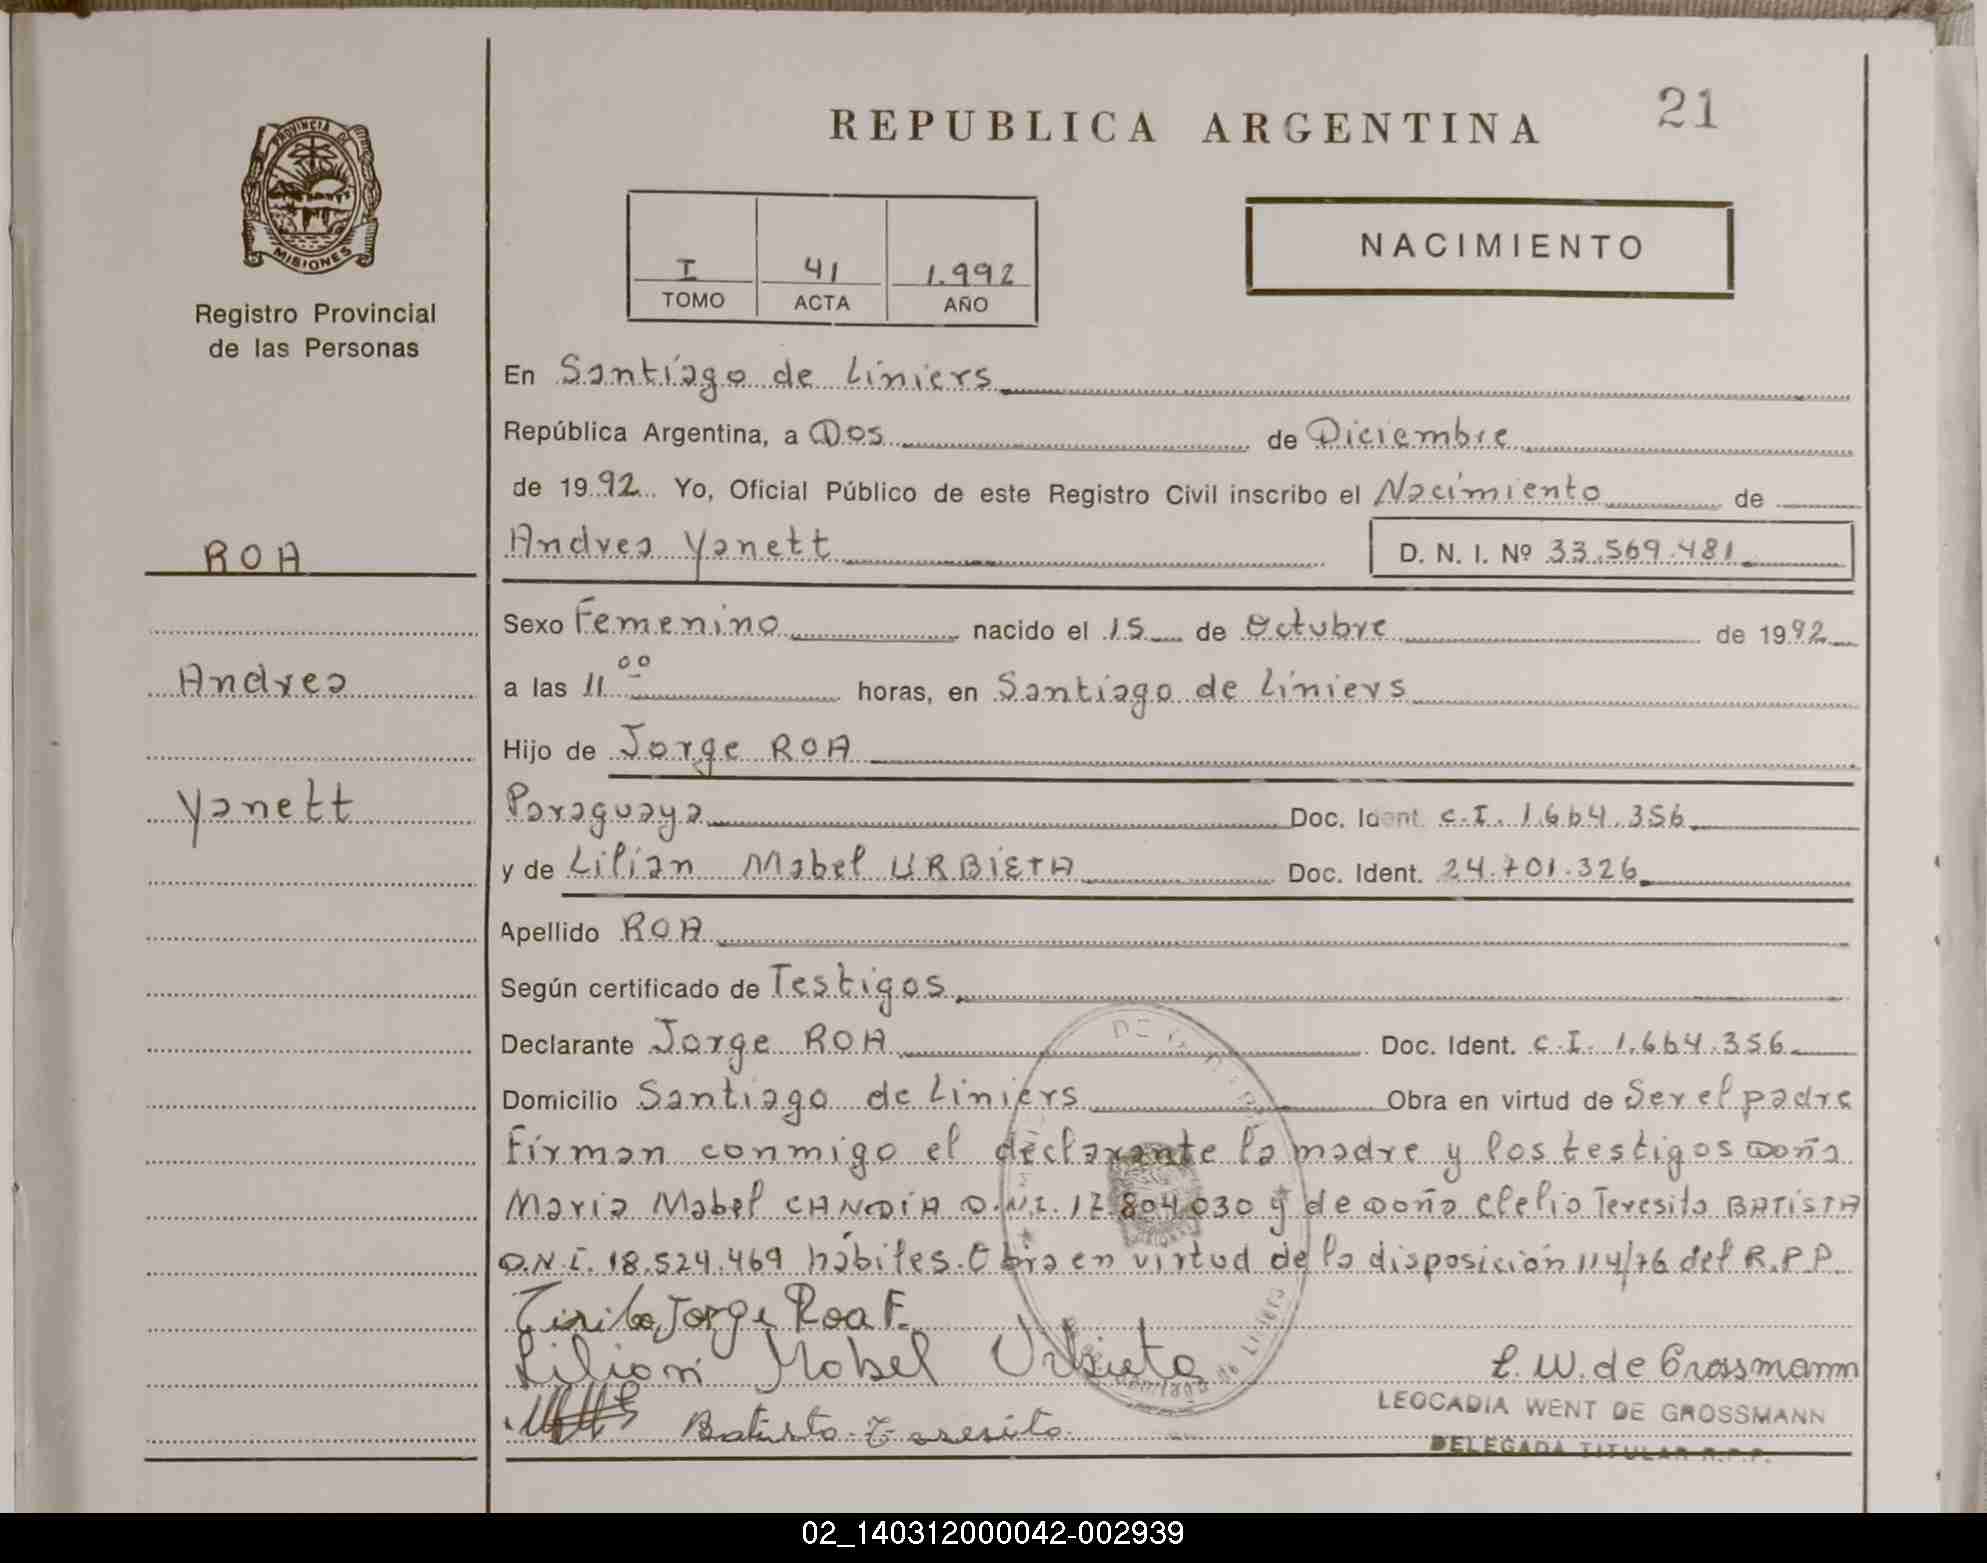 REPUBLICA ARGENTINA
21
PROVINCIA DE
MISIONES
Registro Provincial
de las Personas
I 41 1.992
TOMO ACTA AÑO
NACIMIENTO
En Santiago de Liniers
República Argentina, a Dos de Diciembre
de 1992 Yo, Oficial Público de este Registro Civil inscribo el Nacimiento de
ROA
Andrea Yanett D. N. I. Nº 33.569.481
Sexo Femenino nacido el 15 de Octubre de 1992
Andrea
a las 11 00 horas, en Santiago de Liniers
Hijo de Jorge ROA
Yanett
Paraguaya Doc. Ident. C.I. 1.664.356
y de Lilian Mabel URBIETA Doc. Ident. 24.701.326
Apellido ROA
Según certificado de Testigos
Declarante Jorge ROA Doc. Ident. C.I. 1.664.356
Domicilio Santiago de Liniers Obra en virtud de Ser el padre
Firman conmigo el declarante la madre y los testigos Doña
Maria Mabel CANDIA D.N.I. 804.030 y de Doña Clelia Teresita BATISTA
D.N.I. 18.524.469 hábiles. Obra en virtud de la disposición 114/76 del R.P.P.
Jorge Roa F.
Lilian Mabel Urbieta
L. W. de Grossmann
Batista Teresita
LEOCADIA WENT DE GROSSMANN
DELEGADA TITULAR R.P.P.
Santiago de Liniers
02_140312000042-002939